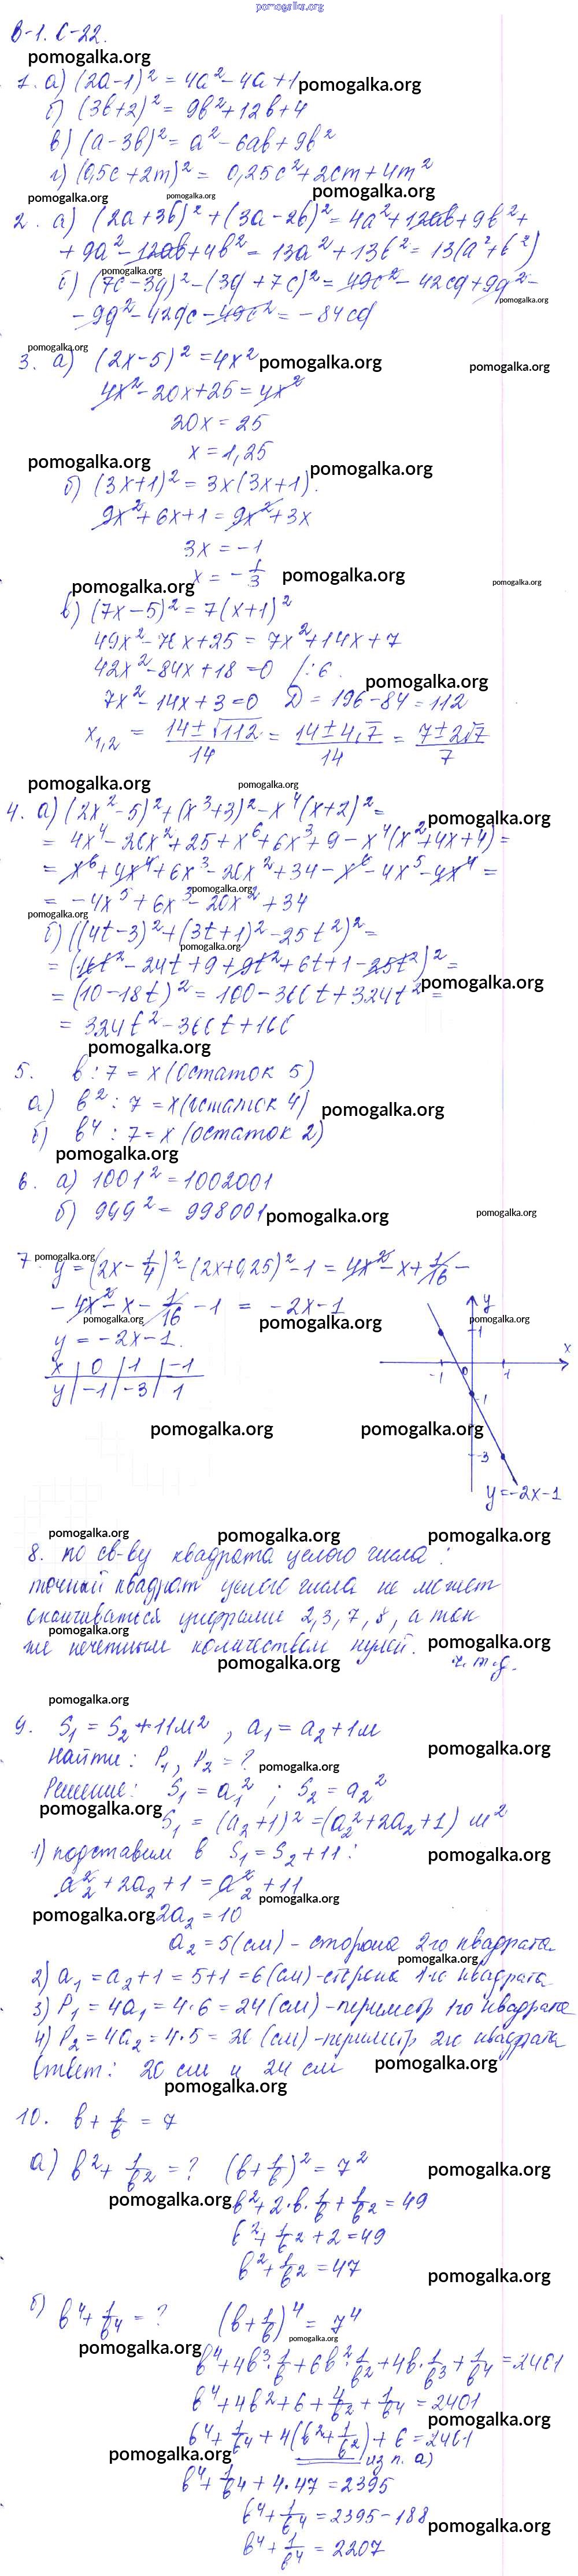 pomogalka.org
В-1. С-22.
pomogalka.org
1. а) (2a-1)² = 4a² - 4a + 1 pomogalka.org
б) (3b+2)² = 9b² + 12b + 4
в) (a-3b)² = a² - 6ab + 9b²
г) (0,5c + 2m)² = 0,25c² + 2cm + 4m²
pomogalka.org pomogalka.org pomogalka.org
2. а) (2a+3b)² + (3a-2b)² = 4a² + 12ab + 9b² +
+ 9a² - 12ab + 4b² = 13a² + 13b² = 13(a²+b²)
pomogalka.org
б) (7c-3q)² - (3q+7c)² = 49c² - 42cq + 9q² -
pomogalka.org
- 9q² - 42qc - 49c² = -84cq
pomogalka.org
3. а) (2x-5)² = 4x² pomogalka.org pomogalka.org
4x² - 20x + 25 = 4x²
20x = 25
x = 1,25
pomogalka.org pomogalka.org
б) (3x+1)² = 3x(3x+1).
9x² + 6x + 1 = 9x² + 3x
3x = -1
x = -1/3 pomogalka.org
pomogalka.org pomogalka.org
в) (7x-5)² = 7(x+1)²
49x² - 70x + 25 = 7x² + 14x + 7
42x² - 84x + 18 = 0 /:6
pomogalka.org
7x² - 14x + 3 = 0 D = 196 - 84 = 112
x₁,₂ = (14±√112)/14 = (14±4√7)/14 = (7±2√7)/7
pomogalka.org pomogalka.org
4. а) (2x²-5)² + (x³+3)² - x⁴(x+2)² =
pomogalka.org
= 4x⁴ - 20x² + 25 + x⁶ + 6x³ + 9 - x⁴(x²+4x+4) =
= x⁶ + 4x⁴ + 6x³ - 20x² + 34 - x⁶ - 4x⁵ - 4x⁴ =
pomogalka.org
= -4x⁵ + 6x³ - 20x² + 34
pomogalka.org
б) ((4t-3)² + (3t+1)² - 25t²)² =
pomogalka.org
= (16t² - 24t + 9 + 9t² + 6t + 1 - 25t²)² =
pomogalka.org
= (10-18t)² = 100 - 360t + 324t² =
= 324t² - 360t + 100
pomogalka.org
5. b : 7 = x (остаток 5)
а) b² : 7 = x (остаток 4) pomogalka.org
б) b⁴ : 7 = x (остаток 2)
pomogalka.org
6. а) 1001² = 1002001
б) 999² = 998001 pomogalka.org pomogalka.org
pomogalka.org
7. y = (2x - 1/4)² - (2x+0,25)² - 1 = 4x² - x + 1/16 -
- 4x² - x - 1/16 - 1 = -2x-1
pomogalka.org pomogalka.org pomogalka.org
y = -2x-1.
x | 0 | 1 | -1
y | -1 | -3 | 1
y
1
x
-1 0 1
-1
-3
y=-2x-1
pomogalka.org pomogalka.org
pomogalka.org pomogalka.org pomogalka.org
8. по св-ву квадрата целого числа:
точный квадрат целого числа не может
оканчиваться цифрами 2, 3, 7, 8, а так
pomogalka.org
же нечетным количеством нулей. pomogalka.org
pomogalka.org ч.т.д.
pomogalka.org
9. S₁ = S₂ + 11м², a₁ = a₂ + 1м
pomogalka.org
Найти: P₁, P₂ = ? pomogalka.org
Решение: S₁ = a₁²; S₂ = a₂²
pomogalka.org
S₁ = (a₂+1)² = (a₂²+2a₂+1) м²
1) подставим в S₁ = S₂ + 11: pomogalka.org
a₂² + 2a₂ + 1 = a₂² + 11
pomogalka.org
pomogalka.org 2a₂ = 10
a₂ = 5 (см) - сторона 2го квадрата.
pomogalka.org
2) a₁ = a₂ + 1 = 5+1 = 6 (см) - сторона 1го квадрата
3) P₁ = 4a₁ = 4·6 = 24 (см) - периметр 1го квадрата
4) P₂ = 4a₂ = 4·5 = 20 (см) - периметр 2го квадрата
Ответ: 20 см и 24 см pomogalka.org
pomogalka.org
10. b + 1/b = 7
а) b² + 1/b² = ? (b + 1/b)² = 7² pomogalka.org
pomogalka.org b² + 2·b·1/b + 1/b² = 49
b² + 1/b² + 2 = 49
b² + 1/b² = 47 pomogalka.org
б) b⁴ + 1/b⁴ = ? (b + 1/b)⁴ = 7⁴
pomogalka.org
pomogalka.org
b⁴ + 4b³·1/b + 6b²·1/b² + 4b·1/b³ + 1/b⁴ = 2401
b⁴ + 4b² + 6 + 4/b² + 1/b⁴ = 2401
pomogalka.org
b⁴ + 1/b⁴ + 4(b² + 1/b²) + 6 = 2401
pomogalka.org из п. а)
b⁴ + 1/b⁴ + 4·47 = 2395
b⁴ + 1/b⁴ = 2395 - 188 pomogalka.org
b⁴ + 1/b⁴ = 2207